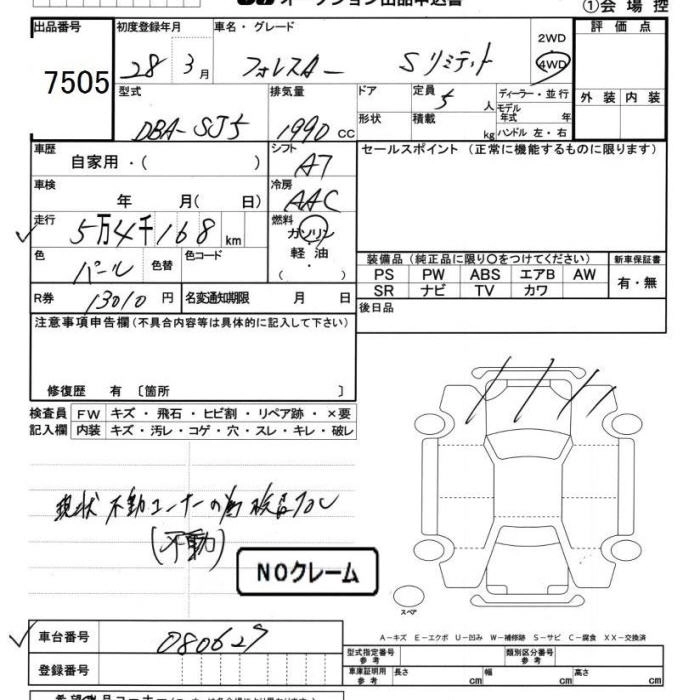 オークション出品申込書
①会 場 控
出品番号
7505
初度登録年月
28 3月
車名・グレード
フォレスター Sリミテット
2WD
4WD
評 価 点
外 装 内 装
型式
DBA-SJ5
排気量
1990 cc
ドア
形状
定員
5人
積載
kg
ディーラー・並行
モデル年式 年
ハンドル 左・右
車歴
自家用・( )
シフト
A7
セールスポイント (正常に機能するものに限ります)
車検
年 月( 日)
冷房
AAC
走行
5万4千168km
燃料
ガソリン
軽 油
・
( )
色
パール
色替
色コード
装備品 (純正品に限り〇をつけてください)
PS PW ABS エアB AW
SR ナビ TV カワ
新車保証書
有・無
R券
13010 円
名変通知期限 月 日
後日品
注意事項申告欄(不具合内容等は具体的に記入して下さい)
修復歴 有〔箇所 〕
検査員記入欄
FW キズ・飛石・ヒビ割・リペア跡・×要
内装 キズ・汚レ・コゲ・穴・スレ・キレ・破レ
現状 不動
(不動)
NOクレーム
スペア
車台番号
080627
登録番号
A-キズ E-エクボ U-凹み W-補修跡 S-サビ C-腐食 XX-交換済
型式指定番号
参考
類別区分番号
参考
車庫証明用
参考
長さ cm
幅 cm
高さ cm